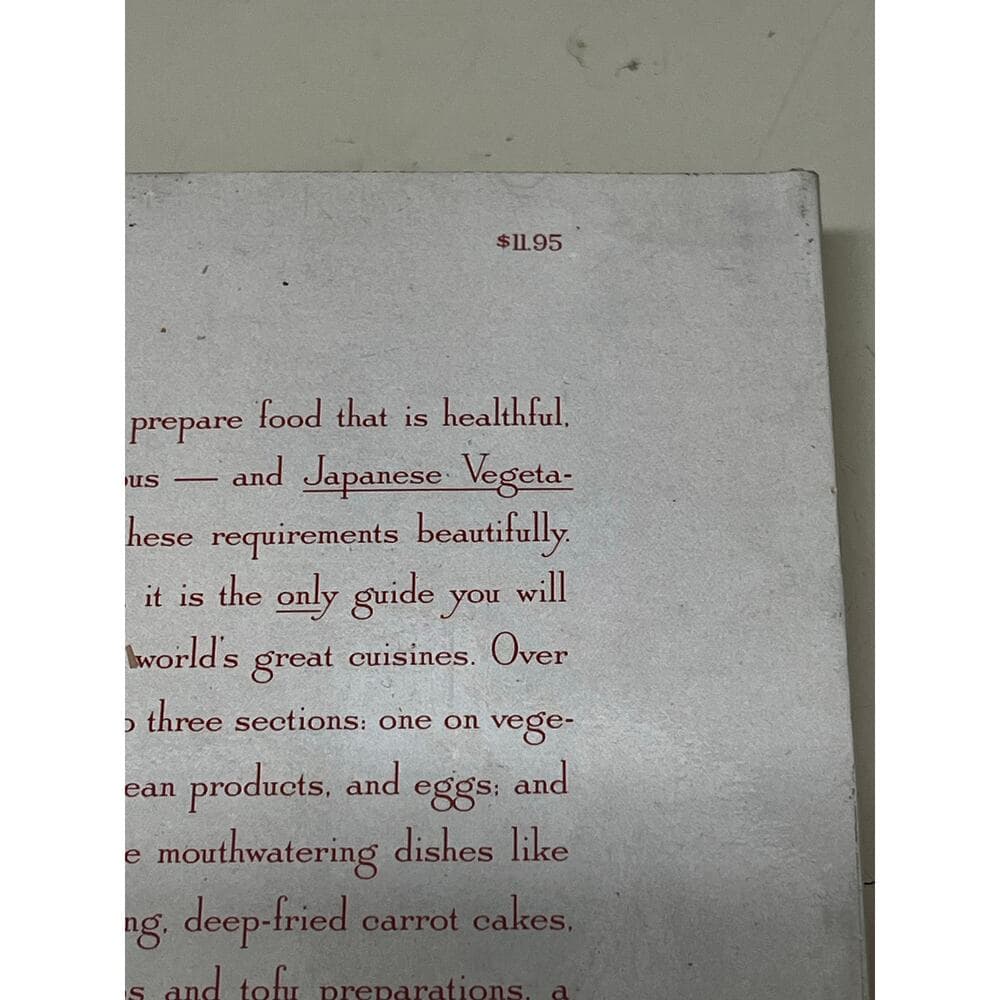 $11.95
prepare food that is healthful,
ous — and Japanese Vegeta-
hese requirements beautifully.
it is the only guide you will
world's great cuisines. Over
o three sections: one on vege-
ean products, and eggs; and
e mouthwatering dishes like
ng, deep-fried carrot cakes,
s and tofu preparations, a